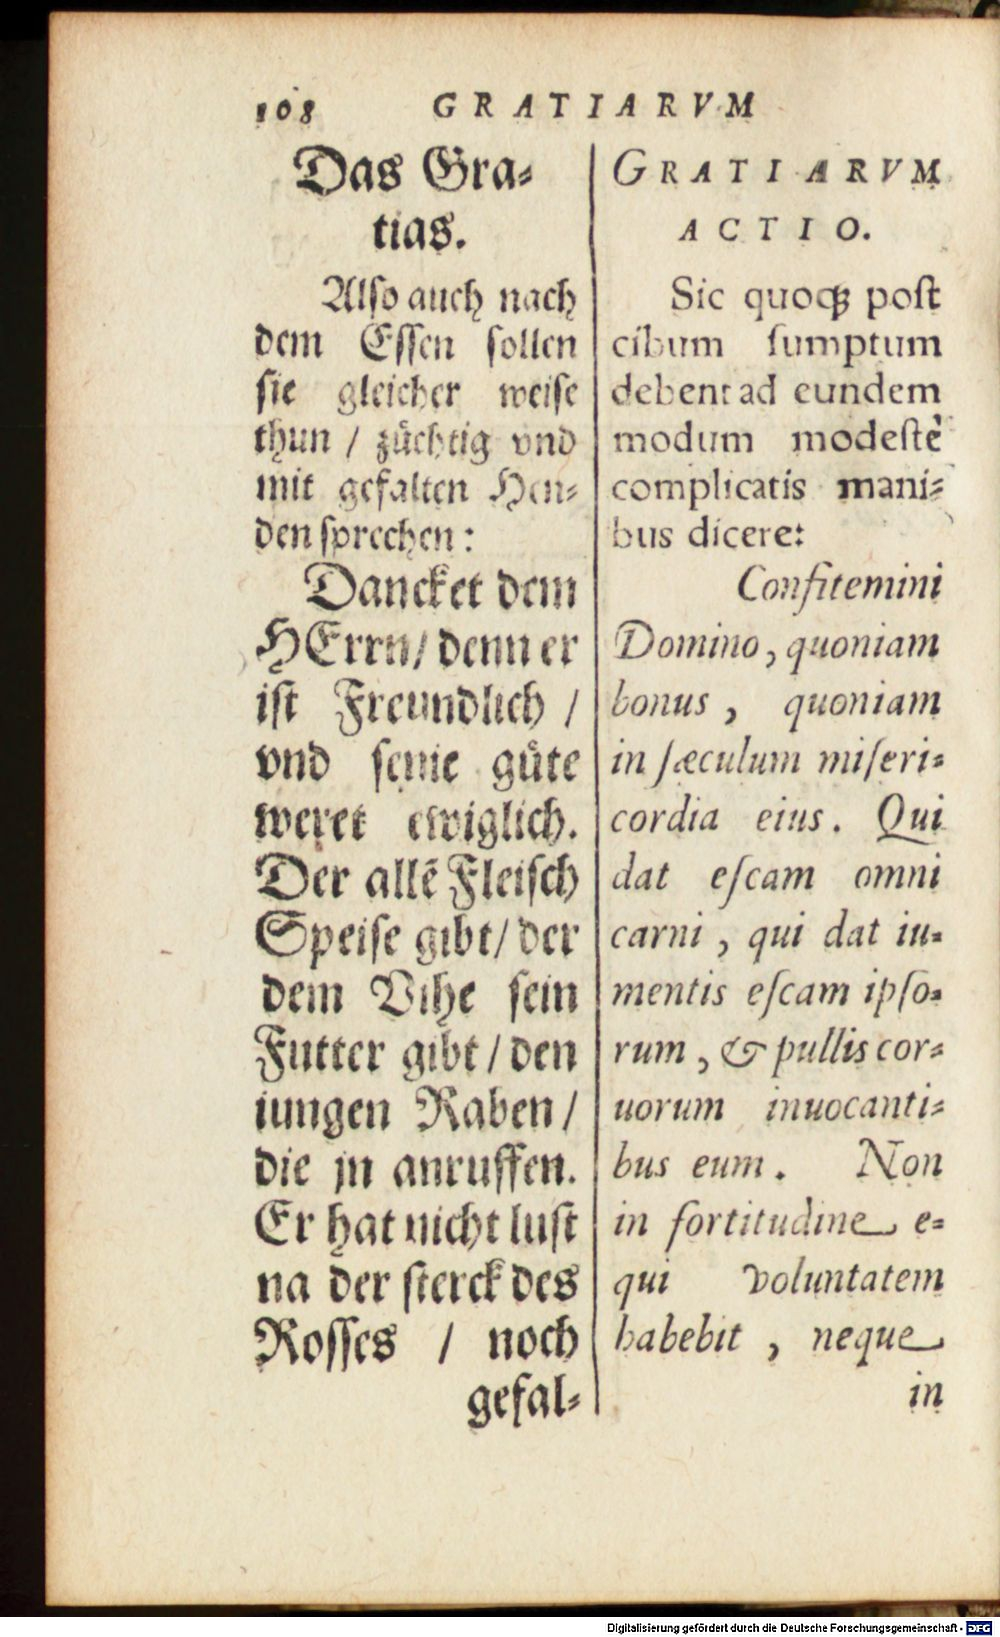 108 GRATIARVM
Das Gra⸗
tias.
Also auch nach
dem Essen sollen
sie gleicher weise
thun / zuͤchtig vnd
mit gefalten Hen⸗
den sprechen:
Dancket dem
HErrn/ denn er
ist Freundlich /
vnd seine guͤte
weret ewiglich.
Der allẽ Fleisch
Speise gibt/ der
dem Vihe sein
Futter gibt / den
iungen Raben /
die jn anruffen.
Er hat nicht lust
na der sterck des
Rosses / noch
gefal⸗
GRATIARVM
ACTIO.
Sic quoqꝫ poſt
cibum ſumptum
debent ad eundem
modum modeſtè
complicatis mani⸗
bus dicere:
Confitemini
Domino, quoniam
bonus, quoniam
in ſæculum miſeri⸗
cordia eius. Qui
dat eſcam omni
carni, qui dat iu⸗
mentis eſcam ipſo⸗
rum, & pullis cor⸗
uorum inuocanti⸗
bus eum. Non
in fortitudine e⸗
qui voluntatem
habebit, neque
in
Digitalisierung gefördert durch die Deutsche Forschungsgemeinschaft - DFG